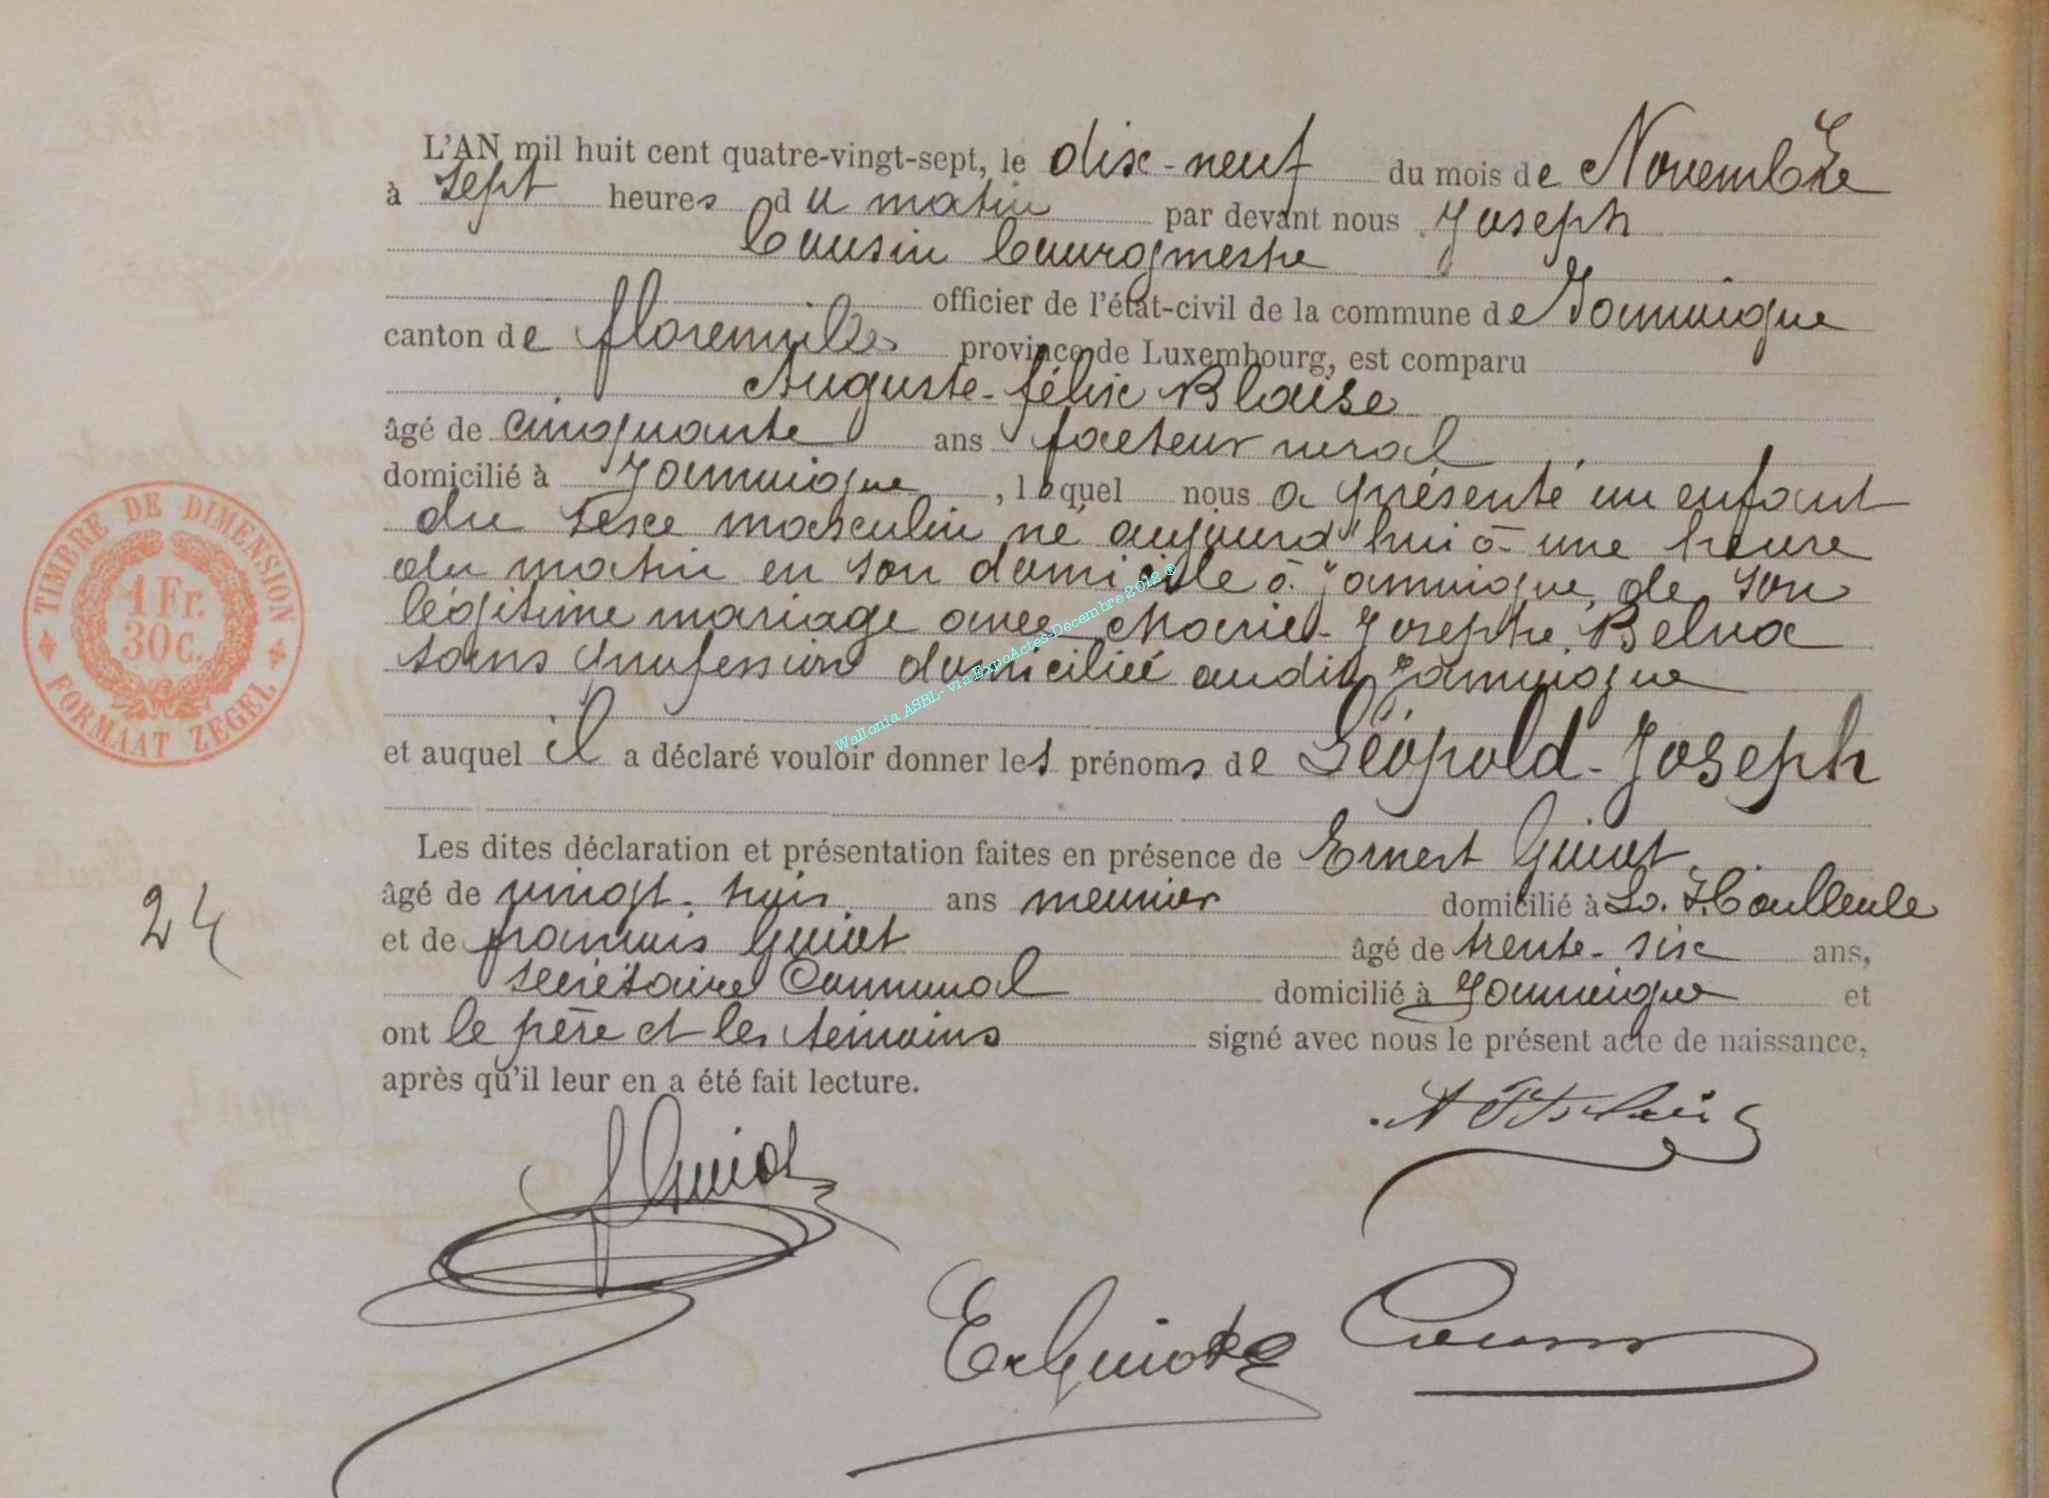 L'AN mil huit cent quatre-vingt-sept, le dix-neuf du mois de Novembre
à sept heures du matin par devant nous Joseph
Cousin bourgmestre
officier de l'état-civil de la commune de Jamoigne
canton de florenville province de Luxembourg, est comparu
Auguste-félix Blaise
âgé de cinquante ans facteur rural
domicilié à Jamoigne, lequel nous a présenté un enfant
du sexe masculin né aujourd'hui à une heure
du matin en son domicile à Jamoigne, de son
légitime mariage avec Marie-Josephe
sans profession domiciliée audit Jamoigne
et auquel il a déclaré vouloir donner les prénoms de Léopold-Joseph
Les dites déclaration et présentation faites en présence de Ernest Guiot
âgé de vingt-trois ans meunier domicilié à
et de françois Guiot âgé de trente-six ans,
secrétaire Communal domicilié à Jamoigne et
ont le père et les témoins signé avec nous le présent acte de naissance,
après qu'il leur en a été fait lecture.
TIMBRE DE DIMENSION
1 Fr.
30 c.
FORMAAT ZEGEL
24
Wallonia ASBL - via ExpoActes-Décembre 2012 ®
f Guiot
Er Guiot
Cousin